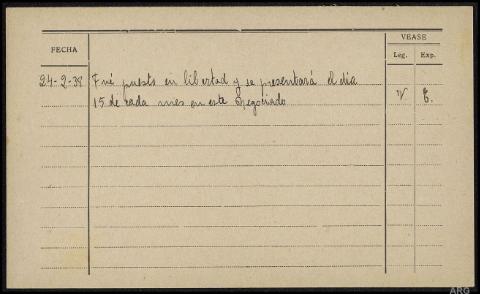 VEASE
FECHA
Leg. Exp.
24-2-38 Fué puesto en libertad y se presentará el dia
15 de cada mes en este Negociado V E.
ARG